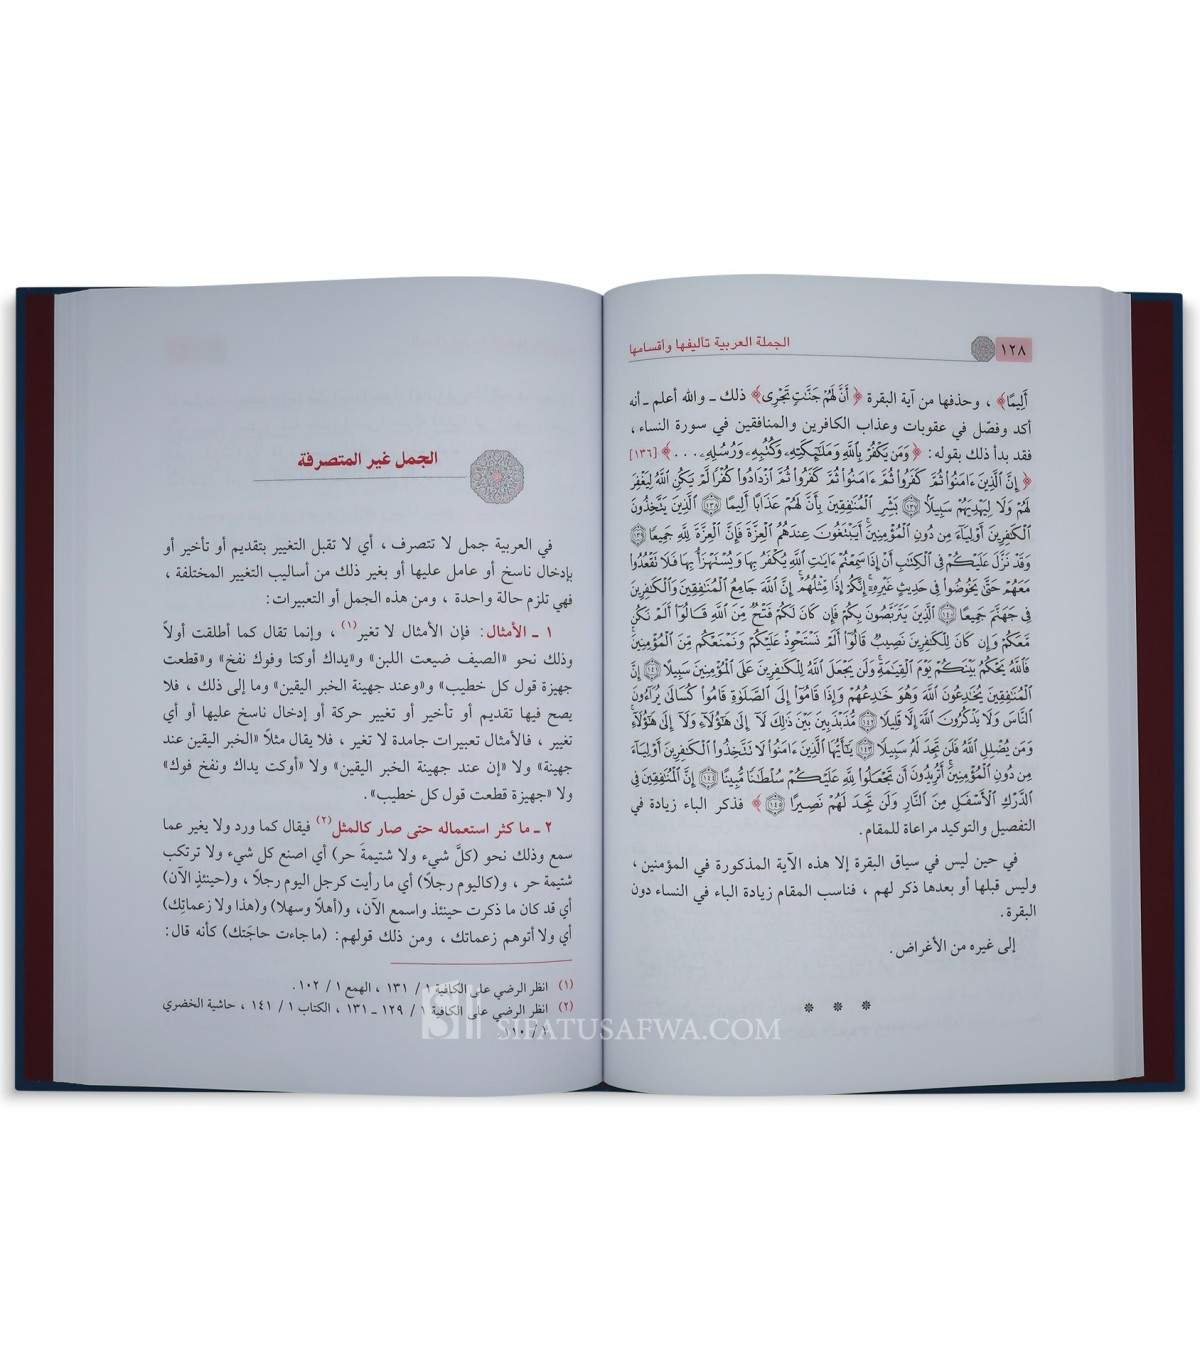 ١٢٨
الجملة العربية تأليفها وأقسامها
أَلِيمًا﴾ ، وحذفها من آية البقرة ﴿ أَنَّ لَهُمْ جَنَّٰتٍ تَجْرِى﴾ ذلك ـ والله أعلم ـ أنه
أكد وفصّل في عقوبات وعذاب الكافرين والمنافقين في سورة النساء ،
فقد بدأ ذلك بقوله : ﴿ وَمَن يَكْفُرْ بِٱللَّهِ وَمَلَٰٓئِكَتِهِۦ وَكُتُبِهِۦ وَرُسُلِهِۦ . . . ﴾ [١٣٦]
﴿ إِنَّ ٱلَّذِينَ ءَامَنُوا۟ ثُمَّ كَفَرُوا۟ ثُمَّ ءَامَنُوا۟ ثُمَّ كَفَرُوا۟ ثُمَّ ٱزْدَادُوا۟ كُفْرًا لَّمْ يَكُنِ ٱللَّهُ لِيَغْفِرَ
لَهُمْ وَلَا لِيَهْدِيَهُمْ سَبِيلًۢا ١٣٧ بَشِّرِ ٱلْمُنَٰفِقِينَ بِأَنَّ لَهُمْ عَذَابًا أَلِيمًا ١٣٨ ٱلَّذِينَ يَتَّخِذُونَ
ٱلْكَٰفِرِينَ أَوْلِيَآءَ مِن دُونِ ٱلْمُؤْمِنِينَ ۚ أَيَبْتَغُونَ عِندَهُمُ ٱلْعِزَّةَ فَإِنَّ ٱلْعِزَّةَ لِلَّهِ جَمِيعًا ١٣٩
وَقَدْ نَزَّلَ عَلَيْكُمْ فِى ٱلْكِتَٰبِ أَنْ إِذَا سَمِعْتُمْ ءَايَٰتِ ٱللَّهِ يُكْفَرُ بِهَا وَيُسْتَهْزَأُ بِهَا فَلَا تَقْعُدُوا۟
مَعَهُمْ حَتَّىٰ يَخُوضُوا۟ فِى حَدِيثٍ غَيْرِهِۦٓ ۚ إِنَّكُمْ إِذًا مِّثْلُهُمْ ۗ إِنَّ ٱللَّهَ جَامِعُ ٱلْمُنَٰفِقِينَ وَٱلْكَٰفِرِينَ
فِى جَهَنَّمَ جَمِيعًا ١٤٠ ٱلَّذِينَ يَتَرَبَّصُونَ بِكُمْ فَإِن كَانَ لَكُمْ فَتْحٌ مِّنَ ٱللَّهِ قَالُوٓا۟ أَلَمْ نَكُن
مَّعَكُمْ وَإِن كَانَ لِلْكَٰفِرِينَ نَصِيبٌ قَالُوٓا۟ أَلَمْ نَسْتَحْوِذْ عَلَيْكُمْ وَنَمْنَعْكُم مِّنَ ٱلْمُؤْمِنِينَ ۚ
فَٱللَّهُ يَحْكُمُ بَيْنَكُمْ يَوْمَ ٱلْقِيَٰمَةِ ۗ وَلَن يَجْعَلَ ٱللَّهُ لِلْكَٰفِرِينَ عَلَى ٱلْمُؤْمِنِينَ سَبِيلًا ١٤١ إِنَّ
ٱلْمُنَٰفِقِينَ يُخَٰدِعُونَ ٱللَّهَ وَهُوَ خَٰدِعُهُمْ وَإِذَا قَامُوٓا۟ إِلَى ٱلصَّلَوٰةِ قَامُوا۟ كُسَالَىٰ يُرَآءُونَ
ٱلنَّاسَ وَلَا يَذْكُرُونَ ٱللَّهَ إِلَّا قَلِيلًا ١٤٢ مُّذَبْذَبِينَ بَيْنَ ذَٰلِكَ لَآ إِلَىٰ هَٰٓؤُلَآءِ وَلَآ إِلَىٰ هَٰٓؤُلَآءِ ۚ
وَمَن يُضْلِلِ ٱللَّهُ فَلَن تَجِدَ لَهُۥ سَبِيلًا ١٤٣ يَٰٓأَيُّهَا ٱلَّذِينَ ءَامَنُوا۟ لَا تَتَّخِذُوا۟ ٱلْكَٰفِرِينَ أَوْلِيَآءَ
مِن دُونِ ٱلْمُؤْمِنِينَ ۚ أَتُرِيدُونَ أَن تَجْعَلُوا۟ لِلَّهِ عَلَيْكُمْ سُلْطَٰنًا مُّبِينًا ١٤٤ إِنَّ ٱلْمُنَٰفِقِينَ فِى
ٱلدَّرْكِ ٱلْأَسْفَلِ مِنَ ٱلنَّارِ وَلَن تَجِدَ لَهُمْ نَصِيرًا ١٤٥ ﴾ فذكر الباء زيادة في
التفصيل والتوكيد مراعاة للمقام .
في حين ليس في سياق البقرة إلا هذه الآية المذكورة في المؤمنين ،
وليس قبلها أو بعدها ذكر لهم ، فناسب المقام زيادة الباء في النساء دون
البقرة .
إلى غيره من الأغراض .
* * *
الجمل غير المتصرفة
في العربية جمل لا تتصرف ، أي لا تقبل التغيير بتقديم أو تأخير أو
بإدخال ناسخ أو عامل عليها أو بغير ذلك من أساليب التغيير المختلفة ،
فهي تلزم حالة واحدة ، ومن هذه الجمل أو التعبيرات :
١ ـ الأمثال : فإن الأمثال لا تغير(١) ، وإنما تقال كما أطلقت أولاً
وذلك نحو «الصيف ضيعت اللبن» و«يداك أوكتا وفوك نفخ» و«قطعت
جهيزة قول كل خطيب» و«وعند جهينة الخبر اليقين» وما إلى ذلك ، فلا
يصح فيها تقديم أو تأخير أو تغيير حركة أو إدخال ناسخ عليها أو أي
تغيير ، فالأمثال تعبيرات جامدة لا تغير ، فلا يقال مثلاً «الخبر اليقين عند
جهينة» ولا «إن عند جهينة الخبر اليقين» ولا «أوكت يداك ونفخ فوك»
ولا «جهيزة قطعت قول كل خطيب» .
٢ ـ ما كثر استعماله حتى صار كالمثل(٢) فيقال كما ورد ولا يغير عما
سمع وذلك نحو (كلَّ شيء ولا شتيمةَ حر) أي اصنع كل شيء ولا ترتكب
شتيمة حر ، و(كاليوم رجلاً) أي ما رأيت كرجل اليوم رجلاً ، و(حينئذٍ الآن)
أي قد كان ما ذكرت حينئذ واسمع الآن، و(أهلاً وسهلا) و(هذا ولا زعماتِك)
أي ولا أتوهم زعماتك ، ومن ذلك قولهم : (ما جاءت حاجَتك) كأنه قال :
(١) انظر الرضي على الكافية ١ / ١٣١ ، الهمع ١ / ١٠٢ .
(٢) انظر الرضي على الكافية ١ / ١٢٩ ـ ١٣١ ، الكتاب ١ / ١٤١ ، حاشية الخضري
SIFATUSAFWA.COM